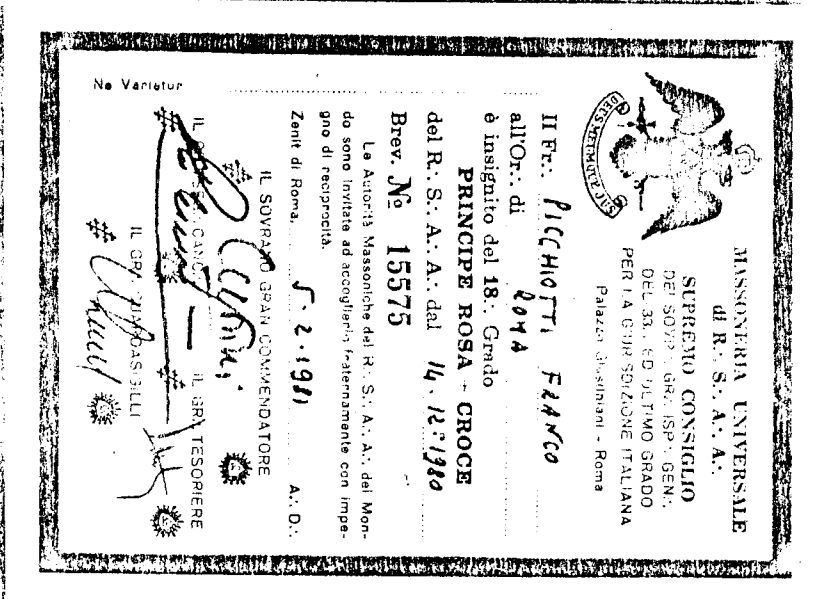 MASSONERIA UNIVERSALE
di R∴ S∴ A∴ A∴
SUPREMO CONSIGLIO
DEI SOVR∴ GR∴ ISP∴ GEN∴
DEL 33∴ ED ULTIMO GRADO
PER LA GIURISDIZIONE ITALIANA
Palazzo Giustiniani - Roma
Il Fr∴ PICCHIOTTI FRANCO
all'Or∴ di ROMA
è insignito del 18∴ Grado
PRINCIPE ROSA + CROCE
del R∴ S∴ A∴ A∴ dal 14.12.1980
Brev. No 15575
Le Autorità Massoniche del R∴ S∴ A∴ A∴ del Mon-
do sono invitate ad accoglierlo fraternamente con impe-
gno di reciprocità.
Zenit di Roma, 5.2.1981 A∴ D∴
IL SOVRANO GRAN COMMENDATORE
IL GRAN CANC
IL GRAN TESORIERE
IL GRAN GUARDASIGILLI
Ne Varietur